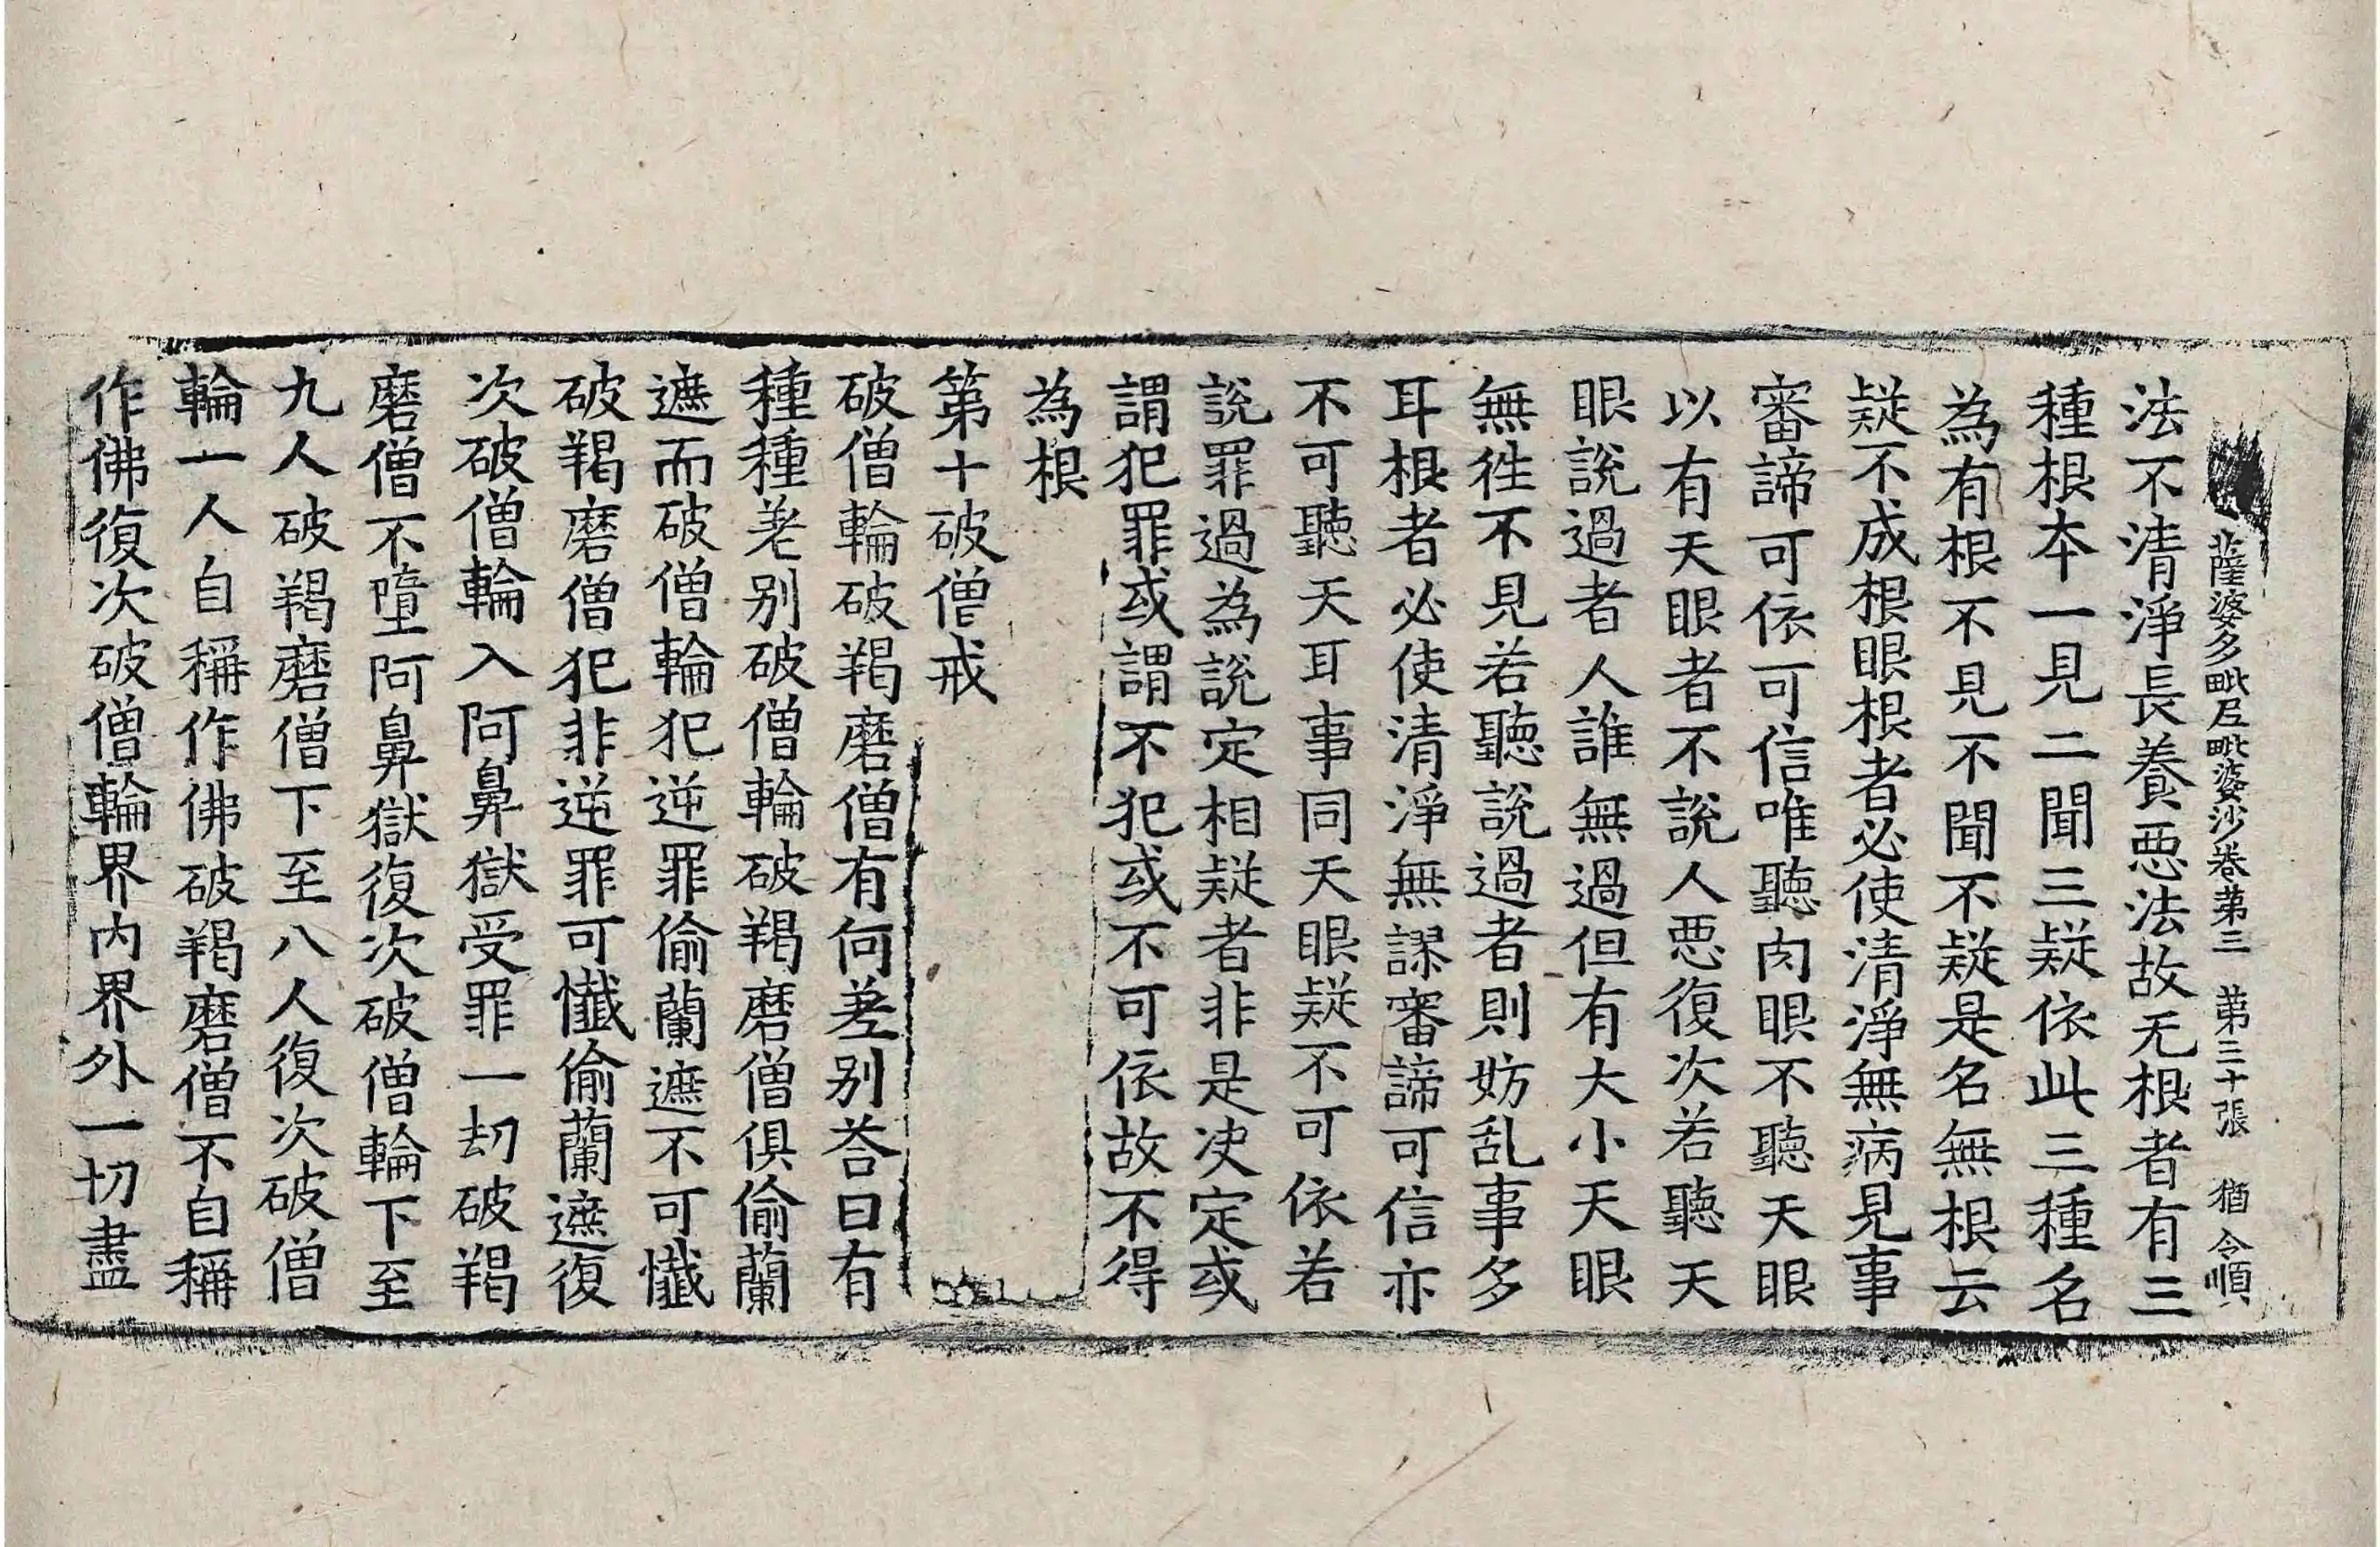 薩婆多毗尼毗婆沙卷苐三 苐三十張 猶 令順
法不清淨長養惡法故无根者有三
種根本一見二聞三疑依此三種名
為有根不見不聞不疑是名無根云
疑不成根眼根者必使清淨無病見事
審諦可依可信唯聽肉眼不聽天眼
以有天眼者不說人惡復次若聽天
眼說過者人誰無過但有大小天眼
無徃不見若聽說過者則妨乱事多
耳根者必使清淨無謬審諦可信亦
不可聽天耳事同天眼疑不可依若
說罪過為說定相疑者非是决定或
謂犯罪或謂不犯或不可依故不得
為根
第十破僧戒
破僧輪破羯磨僧有何差别荅曰有
種種差别破僧輪破羯磨僧俱偷蘭
遮而破僧輪犯逆罪偷蘭遮不可懺
破羯磨僧犯非逆罪可懺偷蘭遮復
次破僧輪入阿鼻獄受罪一劫破羯
磨僧不墮阿鼻獄復次破僧輪下至
九人破羯磨僧下至八人復次破僧
輪一人自稱作佛破羯磨僧不自稱
作佛復次破僧輪界內界外一切盡